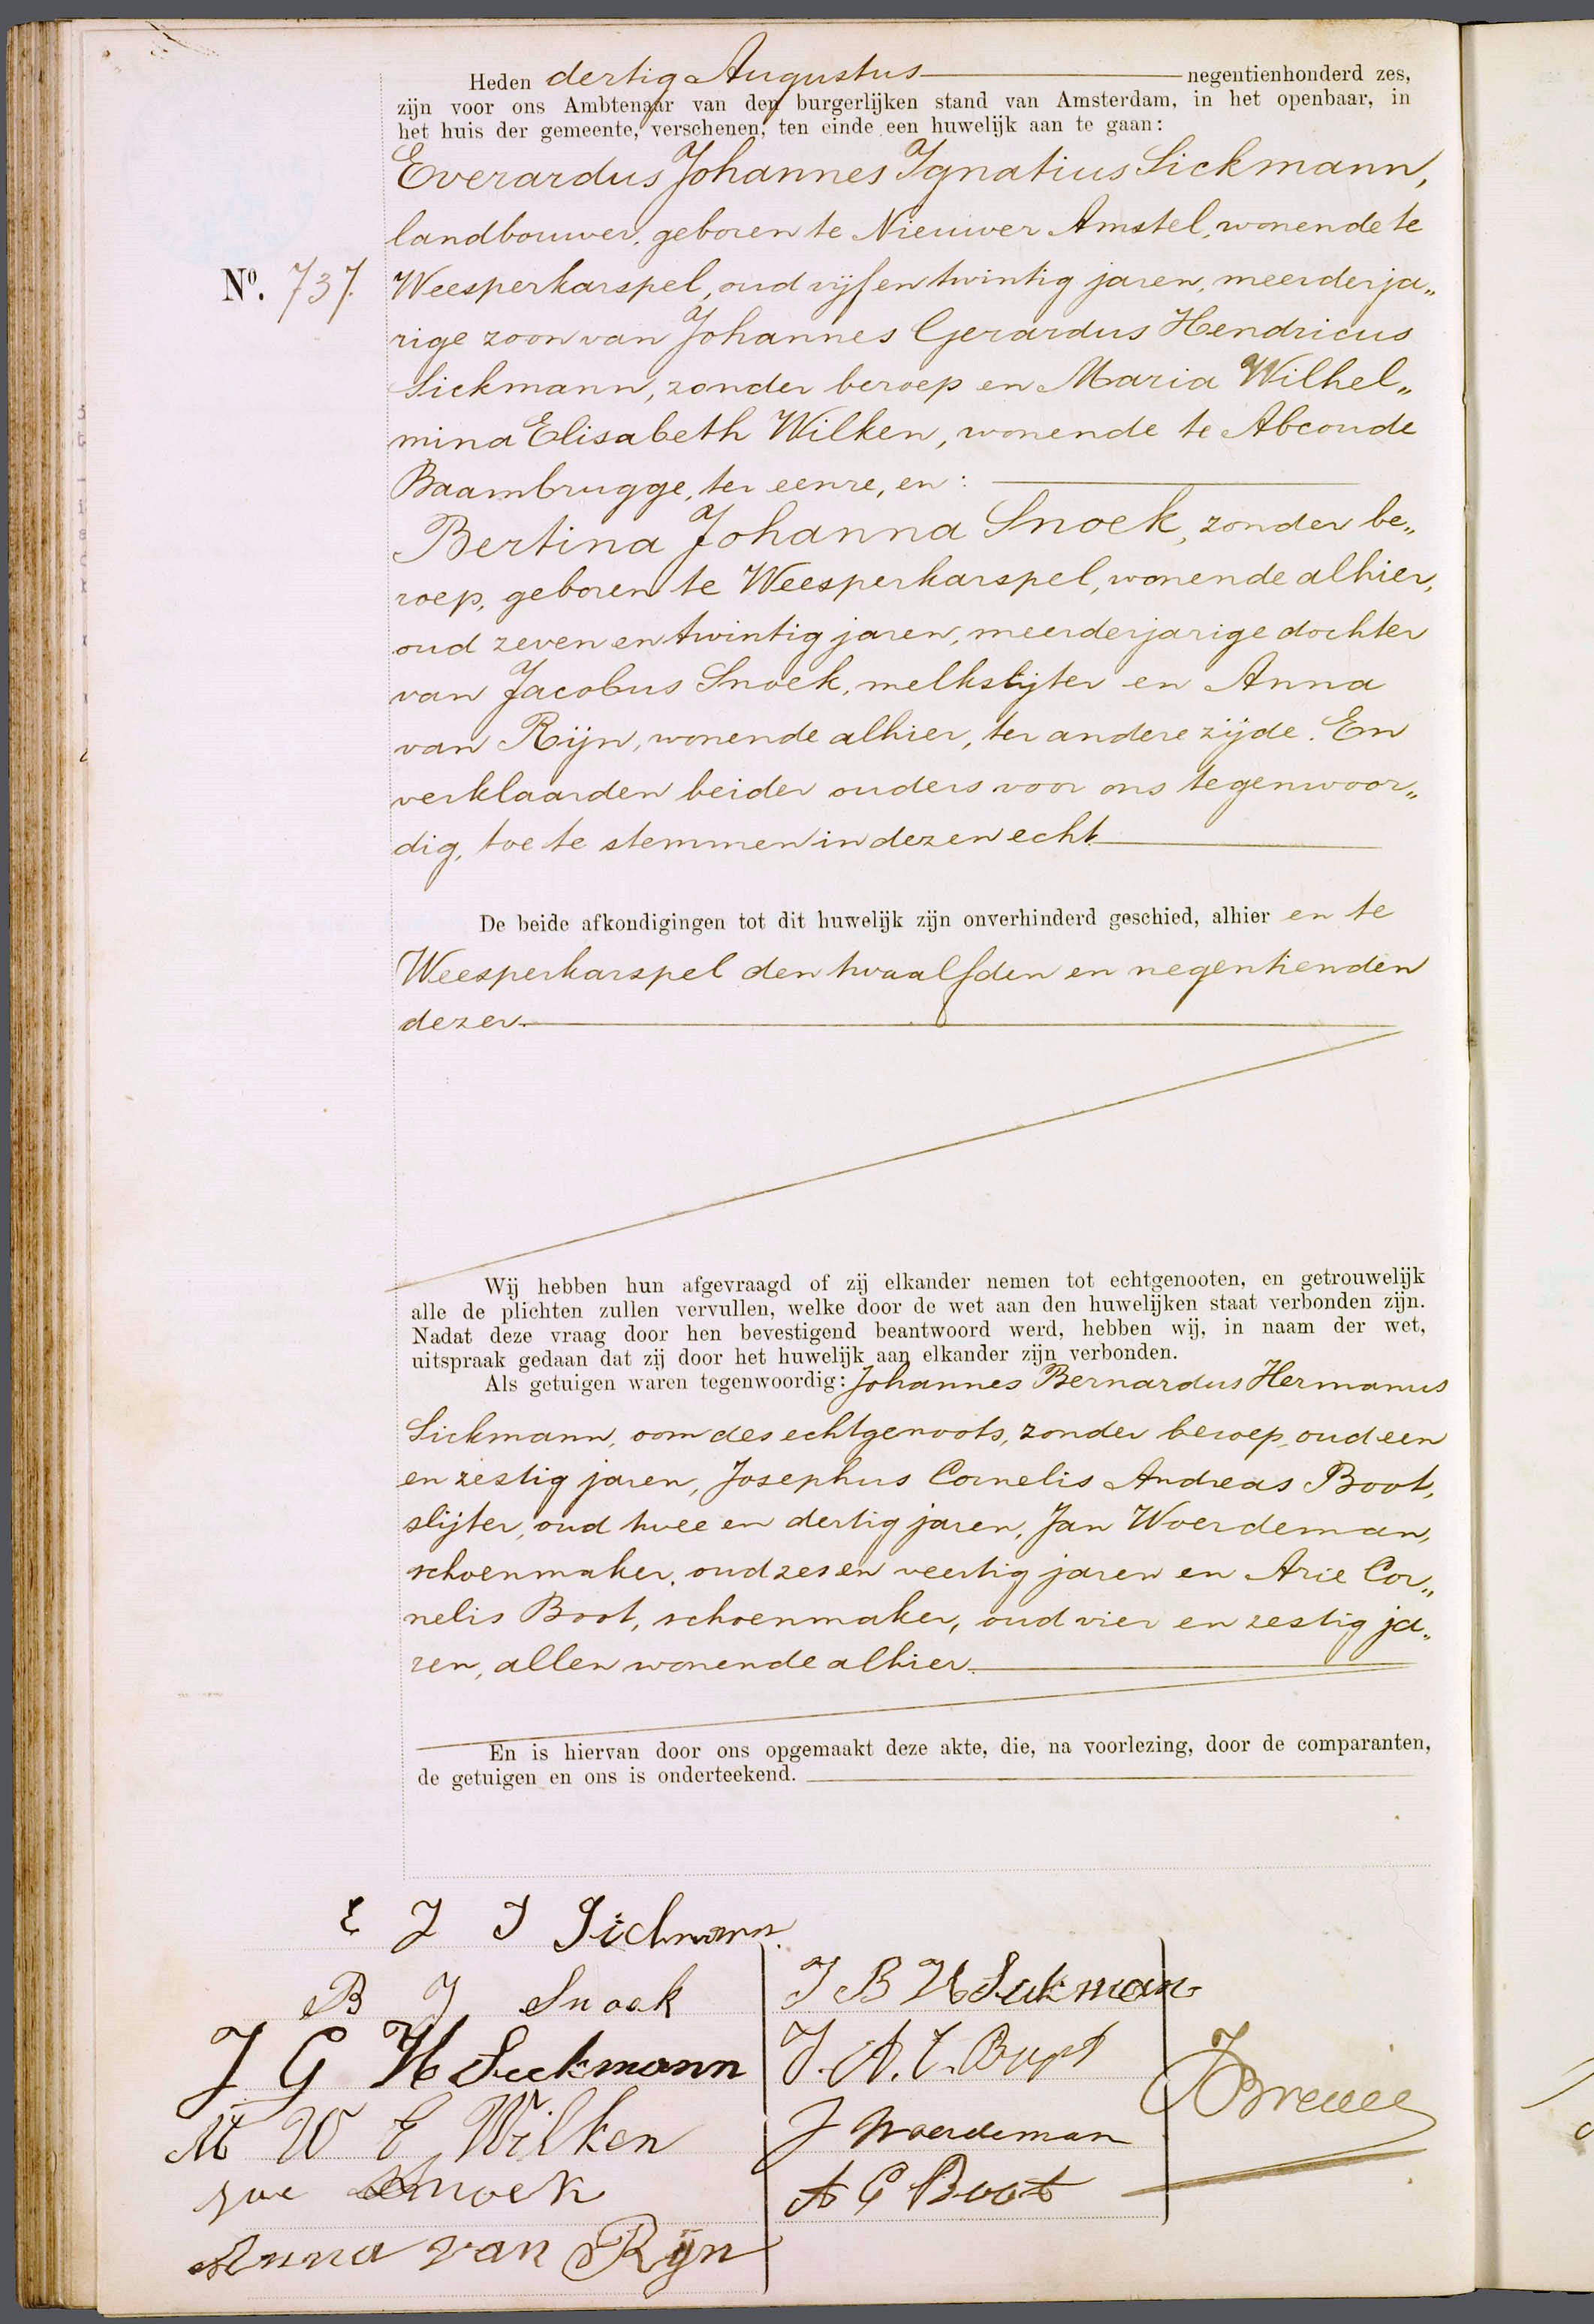 Heden dertig Augustus negentienhonderd zes,
zijn voor ons Ambtenaar van den burgerlijken stand van Amsterdam, in het openbaar, in
het huis der gemeente, verschenen, ten einde een huwelijk aan te gaan:
Everardus Johannes Ignatius Sickmann,
landbouwer, geboren te Nieuwer Amstel, wonende te
No. 737. Weesperkarspel, oud vijf en twintig jaren, meerderja„
rige zoon van Johannes Gerardus Hendricus
Sickmann, zonder beroep en Maria Wilhel„
mina Elisabeth Wilken, wonende te Abcoude
Baambrugge, ter eenre, en:
Bertina Johanna Snoek, zonder be„
roep, geboren te Weesperkarspel, wonende alhier,
oud zeven en twintig jaren, meerderjarige dochter
van Jacobus Snoek, melkslijter en Anna
van Rijn, wonende alhier, ter andere zijde. En
verklaarden beider ouders voor ons tegenwoor„
dig, toe te stemmen in dezen echt.
De beide afkondigingen tot dit huwelijk zijn onverhinderd geschied, alhier en te
Weesperkarspel den twaalfden en negentienden
dezer.
Wij hebben hun afgevraagd of zij elkander nemen tot echtgenooten, en getrouwelijk
alle de plichten zullen vervullen, welke door de wet aan den huwelijken staat verbonden zijn.
Nadat deze vraag door hen bevestigend beantwoord werd, hebben wij, in naam der wet,
uitspraak gedaan dat zij door het huwelijk aan elkander zijn verbonden.
Als getuigen waren tegenwoordig: Johannes Bernardus Hermanus
Sickmann, oom des echtgenoots, zonder beroep, oud een
en zestig jaren, Josephus Cornelis Andreas Boot,
slijter, oud twee en dertig jaren, Jan Woerdeman,
schoenmaker, oud zes en veertig jaren en Arie Cor„
nelis Boot, schoenmaker, oud vier en zestig ja„
ren, allen wonende alhier.
En is hiervan door ons opgemaakt deze akte, die, na voorlezing, door de comparanten,
de getuigen en ons is onderteekend.
E J I Sickmann
B J Snoek
J G H Sickmann
M W E Wilken
Snoek
Anna van Rijn
J B H Sickmann
Boot
J Woerdeman
A C Boot